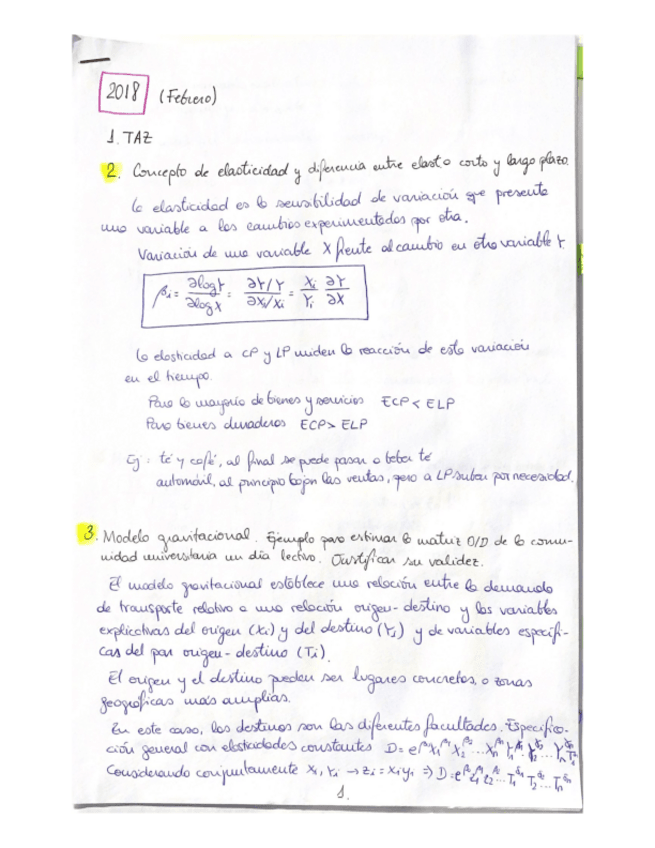 2018 (Febrero)
1. TAZ
2. Concepto de elasticidad y diferencia entre elast. a corto y largo plazo.
La elasticidad es la sensibilidad de variación que presenta
una variable a los cambios experimentados por otra.
Variación de una variable X frente al cambio en otra variable Y.
βi = ∂logY/∂logX = ∂Y/Y / ∂Xi/Xi = Xi/Yi ∂Y/∂X
La elasticidad a CP y LP miden la reacción de esta variación
en el tiempo.
Para la mayoría de bienes y servicios ECP < ELP
Para bienes duraderos ECP > ELP
Ej: té y café, al final se puede pasar a beber té
automóvil, al principio bajan las ventas, pero a LP suben por necesidad.
3. Modelo gravitacional. Ejemplo para estimar la matriz O/D de la comu-
nidad universitaria un día lectivo. Justificar su validez.
El modelo gravitacional establece una relación entre la demanda
de transporte relativo a una relación origen-destino y las variables
explicativas del origen (Xi) y del destino (Yi) y de variables específi-
cas del par origen-destino (Ti).
El origen y el destino pueden ser lugares concretos, o zonas
geográficas más amplias.
En este caso, los destinos son las diferentes facultades. Especifica-
ción general con elasticidades constantes D=
Considerando conjuntamente Xi, Yi → Zi = Xi Yi ⇒ D=
1.